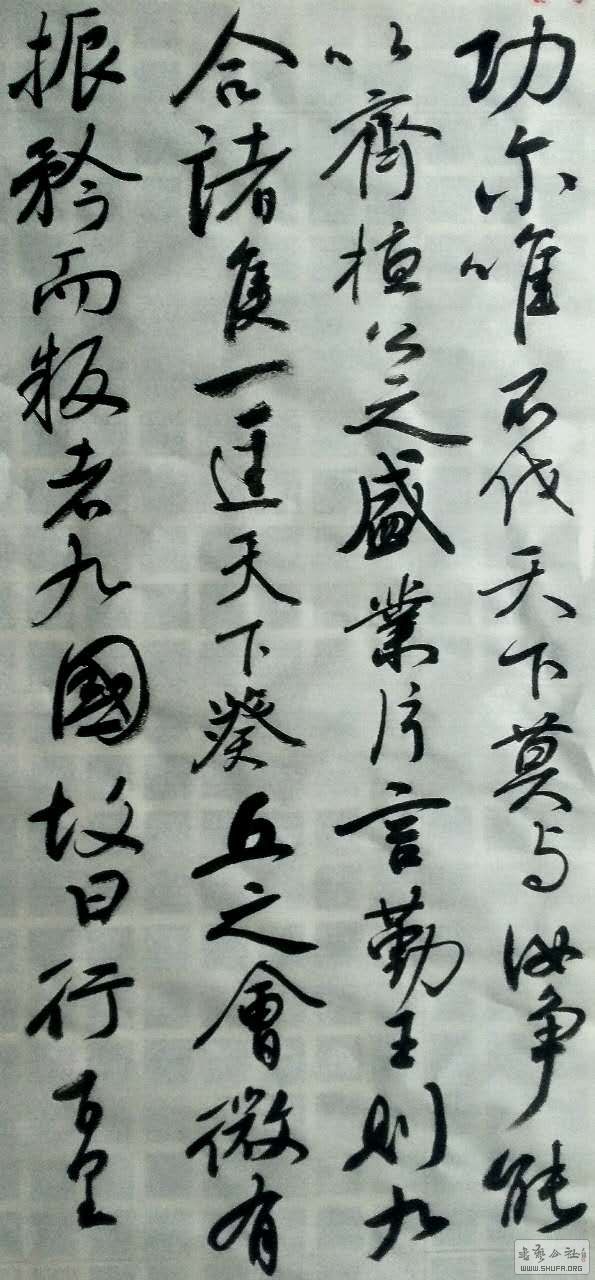 功尔唯不伐天下莫与汝争能
以齊桓公之盛業片言勤王則九
合諸侯一匡天下葵丘之會微有
振矜而叛者九國故曰行百里
书艺公社
WWW.SHUFA.ORG